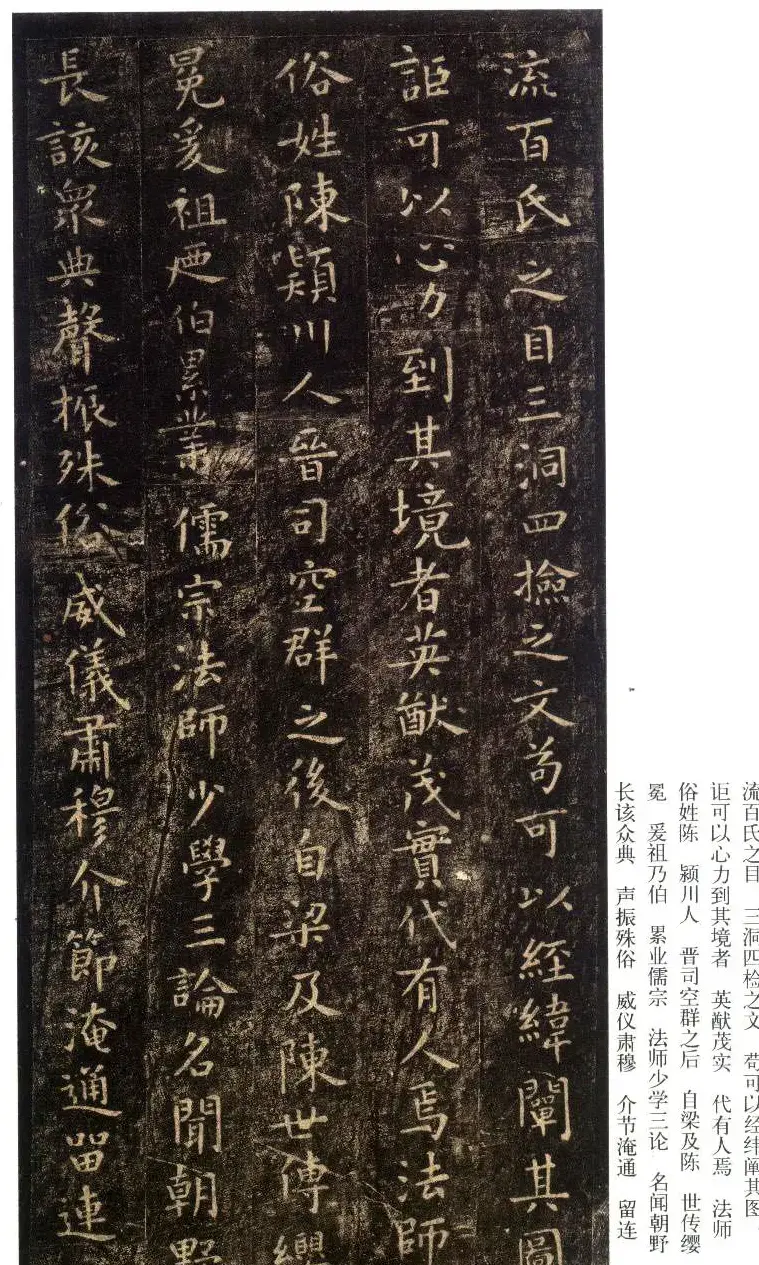 流百氏之目三洞四撿之文苟可以經緯闡其圖
詎可以心力到其境者英猷茂實代有人焉法師
俗姓陳潁川人晉司空群之後自梁及陳世傳纓
冕爰祖迺伯累業儒宗法師少學三論名聞朝野
長該衆典聲振殊俗威儀肅穆介節淹通留連
流百氏之目 三洞四检之文 苟可以经纬阐其图
讵可以心力到其境者 英猷茂实 代有人焉 法师
俗姓陈 颍川人 晋司空群之后 自梁及陈 世传缨
冕 爰祖乃伯 累业儒宗 法师少学三论 名闻朝野
长该众典 声振殊俗 威仪肃穆 介节淹通 留连